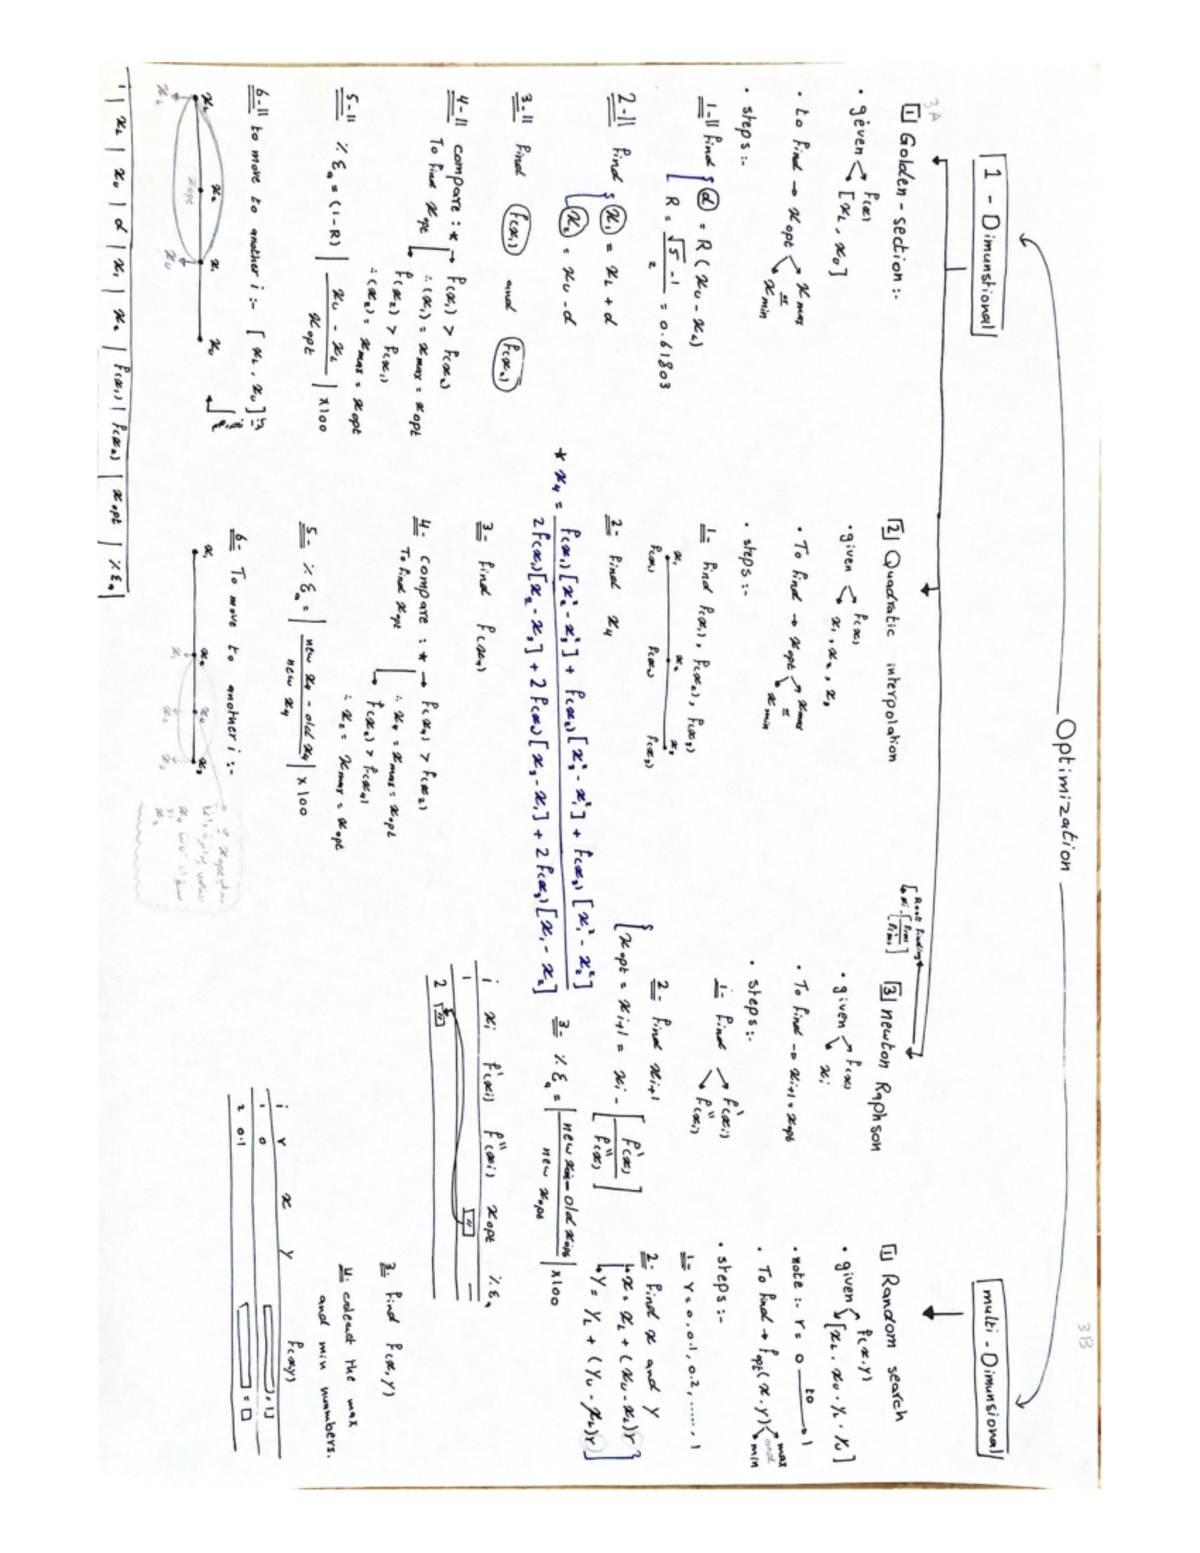 Optimization
3A
3B
1 - Dimunstional
multi - Dimunsional
1 Golden - section :-
• given f(x)
[xL , xU]
• to find → xopt xmax
=
xmin
• steps :-
1- find d = R ( xU - xL)
R = √5 - 1 / 2 = 0.61803
2- find x1 = xL + d
x2 = xU - d
3- find f(x1) and f(x2)
4- compare : * → f(x1) > f(x2)
To find xopt ∴ (x1) = xmax = xopt
f(x2) > f(x1)
∴ (x2) = xmax = xopt
5- % Ea = (1-R) | xU - xL / xopt | x100
6- to move to another i :- [ xL , xU ]
xL x2 x1 xU
xL xopt xU
i | xL | xU | d | x1 | x2 | f(x1) | f(x2) | xopt | % Ea |
2 Quadratic interpolation
• given f(x)
x1 , x2 , x3
• To find → xopt xmax
=
xmin
• steps :-
1- find f(x1) , f(x2) , f(x3)
x1 x2 x3
f(x1) f(x2) f(x3)
2- find x4
* x4 = f(x1)[x2² - x3²] + f(x2)[x3² - x1²] + f(x3)[x1² - x2²]
2f(x1)[x2 - x3] + 2f(x2)[x3 - x1] + 2f(x3)[x1 - x2]
3- find f(x4)
4- compare : * → f(x4) > f(x2)
To find xopt ∴ x4 = xmax = xopt
f(x2) > f(x4)
∴ x2 = xmax = xopt
5- % Ea = | new x4 - old x4 / new x4 | x100
6- To move to another i :-
x1 x2 x4 x3
x1 x2 x3
Root finding
xi - [f(xi) / f'(xi)]
3 newton Raphson
• given f(x)
xi
• To find → xi+1 = xopt
• steps :-
1- find f'(xi)
f''(xi)
2- find xi+1
xopt = xi+1 = xi - [f'(x) / f''(x)]
3- % Ea = | new xi+1 - old xi+1 / new xopt | x100
i xi f'(xi) f''(xi) xopt % Ea
1
2
1 Random search
• given f(x,y)
[xL , xU , yL , yU]
• note :- r = 0 to 1
• To find → fopt(x,y) max
and
min
• steps :-
1- r = 0, 0.1, 0.2, ......, 1
2- find x and y
x = xL + (xU - xL)r
y = yL + (yU - yL)r
3- find f(x,y)
4- coleact the max
and min numbers.
i r x y f(x,y)
1 0
2 0.1